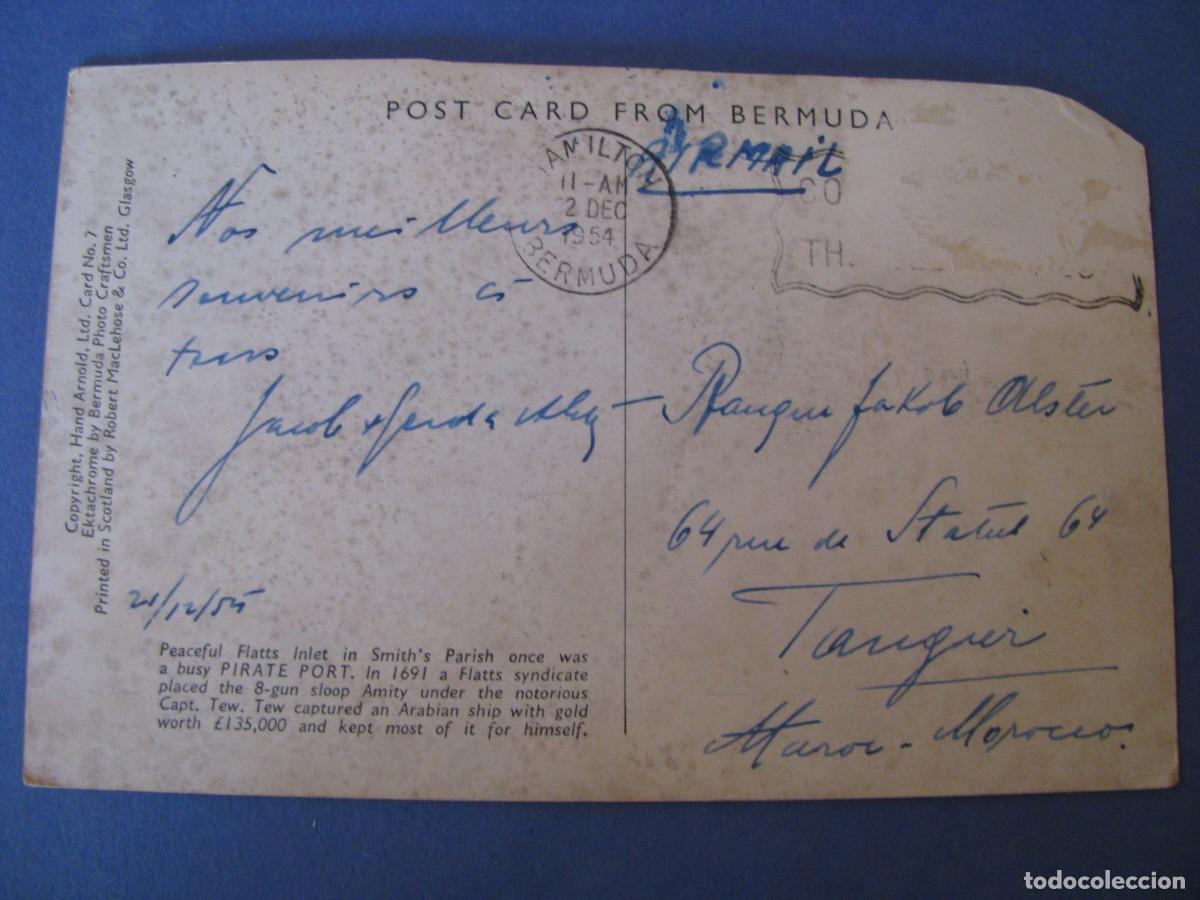 POST CARD FROM BERMUDA
AIRMAIL
HAMILTON
11-AM
2 DEC
1954
BERMUDA
CO
TH
Nos meilleurs
souvenirs à
tous
Jacob + Gerda
21/12/54
Banque Jakob Alster
64 rue de Statut 64
Tangier
Maroc - Morocco.
Copyright, Hand Arnold, Ltd. Card No. 7
Ektachrome by Bermuda Photo Craftsmen
Printed in Scotland by Robert MacLehose & Co. Ltd. Glasgow
Peaceful Flatts Inlet in Smith's Parish once was
a busy PIRATE PORT. In 1691 a Flatts syndicate
placed the 8-gun sloop Amity under the notorious
Capt. Tew. Tew captured an Arabian ship with gold
worth £135,000 and kept most of it for himself.
todocoleccion